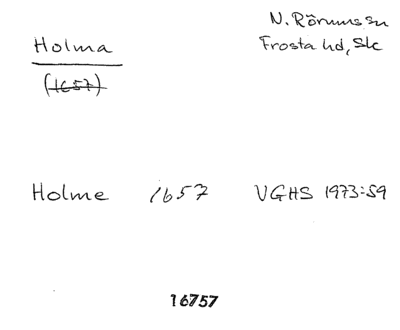 Holma
N. Rörums sn
Frosta hd, Sk
(1657)
Holme 1657 VGHS 1973:59
16757